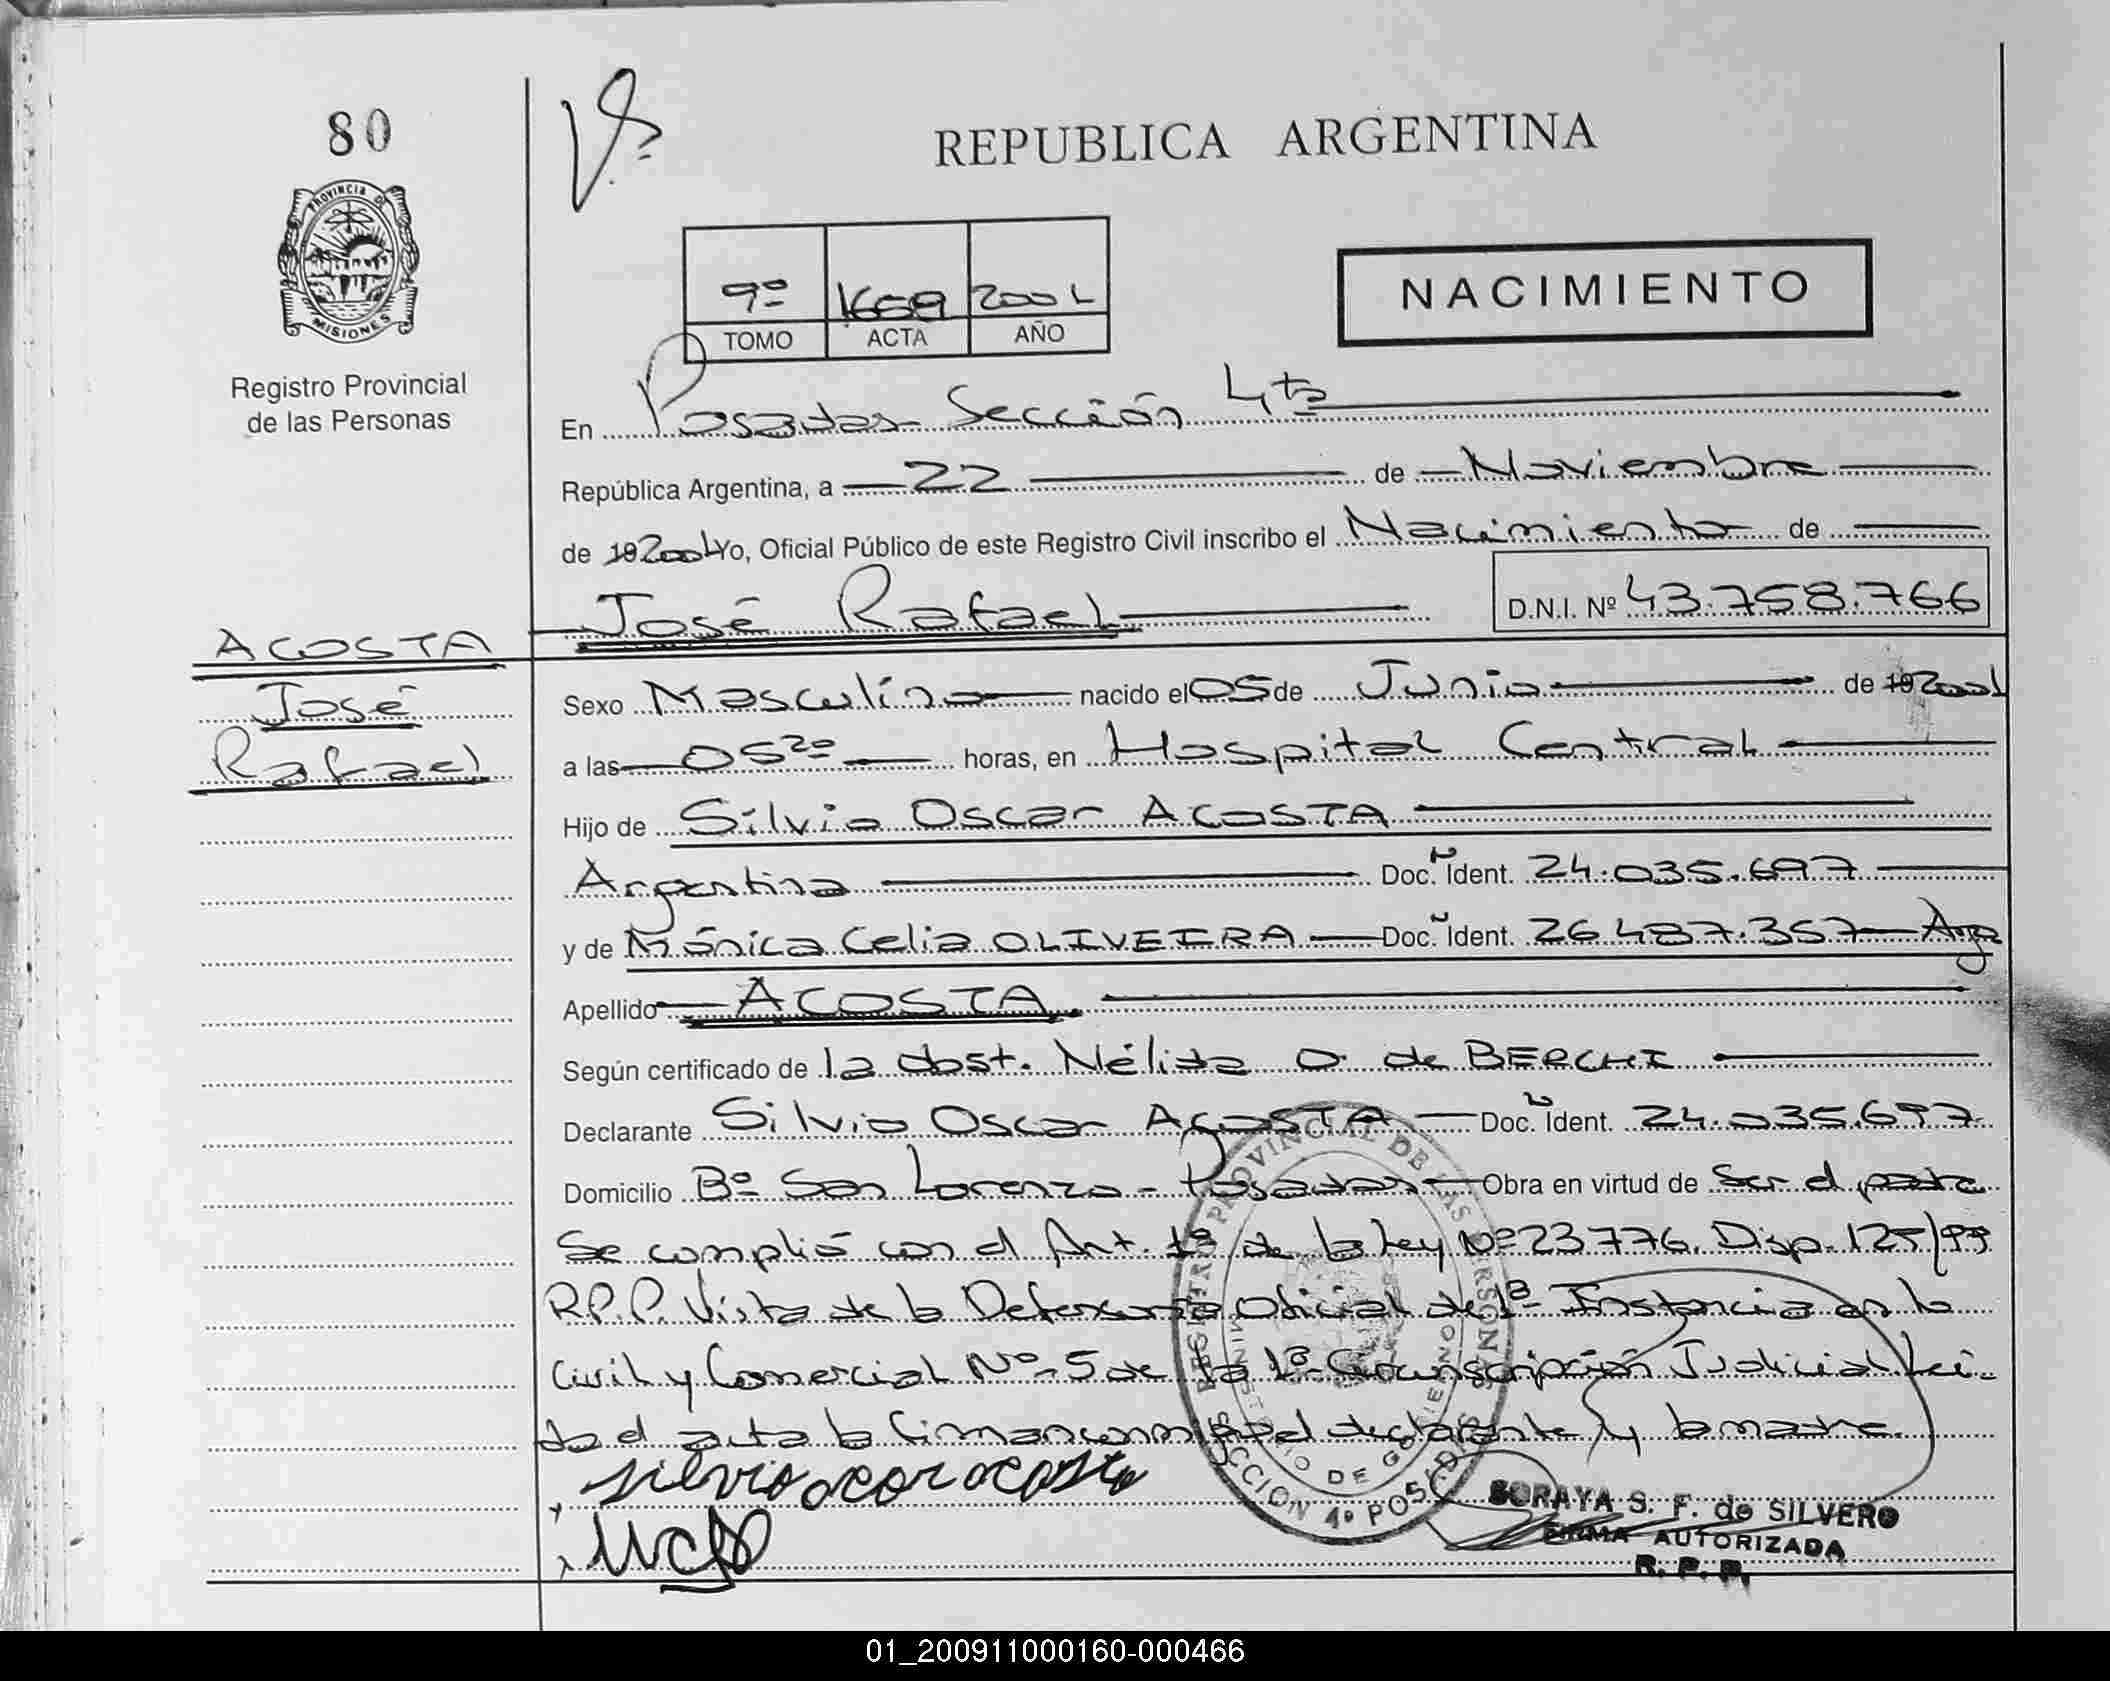 80
REPUBLICA ARGENTINA
PROVINCIA DE
MISIONES
Registro Provincial
de las Personas
9º 1659 2001
TOMO ACTA AÑO
NACIMIENTO
En Posadas Sección 4ta
República Argentina, a 22 de Noviembre
de 192001 Yo, Oficial Público de este Registro Civil inscribo el Nacimiento de
José Rafael D.N.I. Nº 43.758.766
ACOSTA
José
Rafael
Sexo Masculino nacido el 05 de Junio de 192001
a las 05 20 horas, en Hospital Central
Hijo de Silvio Oscar ACOSTA
Argentina Doc. Ident. 24.035.697
y de Mónica Celia OLIVEIRA Doc. Ident. 26.487.357 Arg
Apellido ACOSTA
Según certificado de la obst. Nélida O. de BERCHI
Declarante Silvio Oscar ACOSTA Doc. Ident. 24.035.697
Domicilio Bº San Lorenzo - Posadas Obra en virtud de Ser el padre
Se complió con el Art. 1º de la ley Nº 23776. Disp. 125/99
R.P.P. Vista de la Defensoría Oficial de 1ª Instancia en lo
Civil y Comercial Nº 5 de la 1ª Circunscripción Judicial Leí-
da el acta la firman conmigo el declarante y la madre.
silvio oscar acosta
REGISTRO PROVINCIAL DE LAS PERSONAS
MINISTERIO DE GOBIERNO
SECCION 4º POSADAS
SORAYA S. F. de SILVERO
FIRMA AUTORIZADA
R. P. P.
01_200911000160-000466